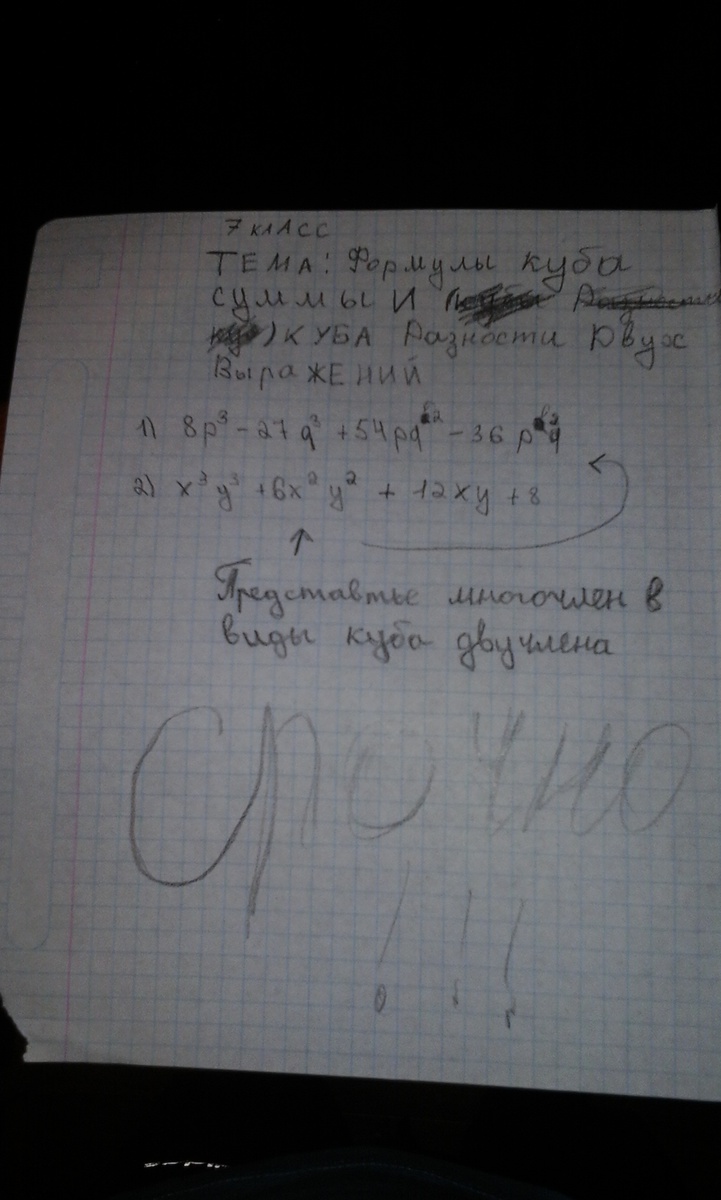 7 класс
ТЕМА: Формулы куба
суммы и
КУБА Разности Двух
ВыраЖЕНИЙ
1) 8p³ - 27q³ + 54pq² - 36p²q
2) x³y³ + 6x²y² + 12xy + 8
Представтье многочлен в
виды куба двучлена
Срочно
!!!